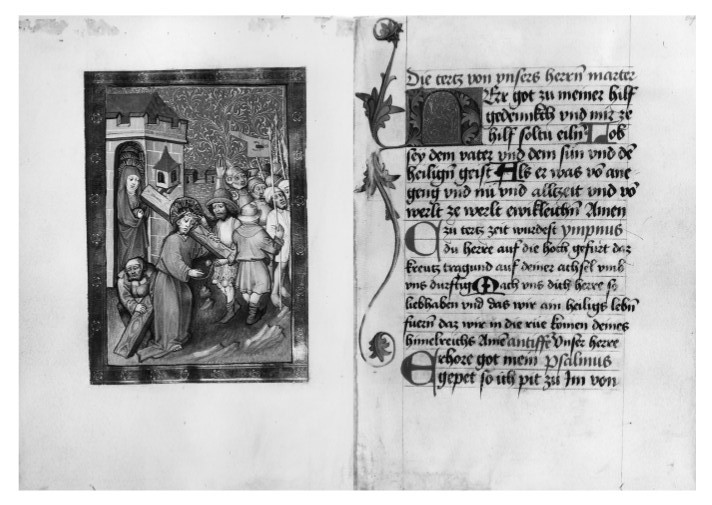 Die tertz von vnsers herrn marter
Err got zu meiner hilf
gedennkch vnd mir ze
hilf soltu eiln Lob
sey dem vater vnd dem sun vnd dē
heilign geist Als er was vō ane
geng vnd nu vnd alltzeit vnd vō
werlt ze werlt ewikleichn Amen
Czu tertz zeit wurdest ympnus
du herre auf die hoch gefürt daz
kreutz tragund auf deiner achsel vmb
vns durftig Mach vns dich herre so
liebhaben vnd das wir am heiligs lebn
fuern daz wir in die rüe komen deines
himelreichs Ame antiffe Vnser herre
Erhore got mein psalmus
gepet so ich pit zu Im von